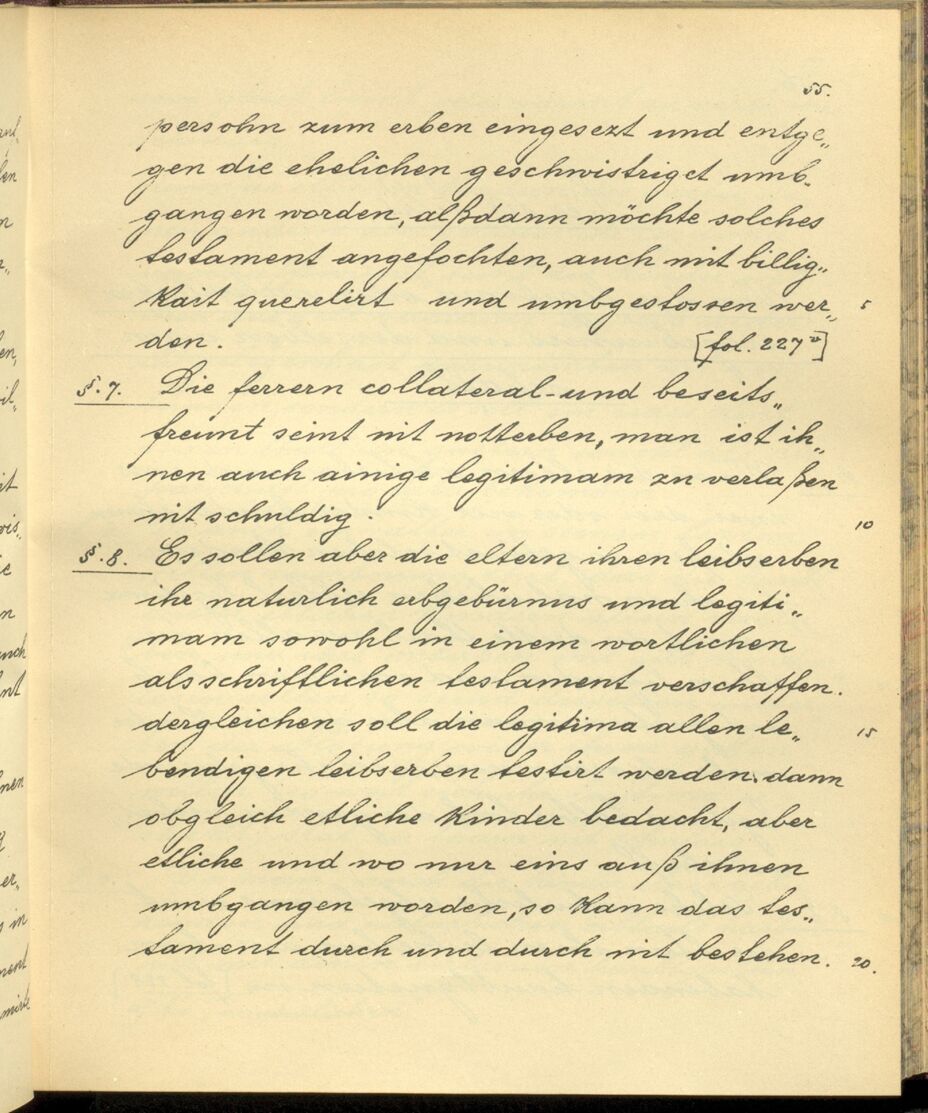 55.
persohn zum erben eingesezt und entge„
gen die ehelichen geschwistriget umb„
gangen worden, alßdann möchte solches
testament angefochten, auch mit billig„
kait querelirt und umbgestossen wer„ 5
den. [fol. 227v]
§. 7. Die ferrern collateral- und beseits„
freunt seint nit notterben, man ist ih„
nen auch ainige legitimam zu verlaßen
nit schuldig. 10
§. 8. Es sollen aber die eltern ihren leibserben
ihr naturlich erbgebürnus und legiti„
mam sowohl in einem wortlichen
als schriftlichen testament verschaffen.
dergleichen soll die legitima allen le„ 15
bendigen leibserben testirt werden. dann
obgleich etliche kinder bedacht, aber
etliche und wo nur eins auß ihnen
umbgangen worden, so kann das tes„
tament durch und durch nit bestehen. 20.